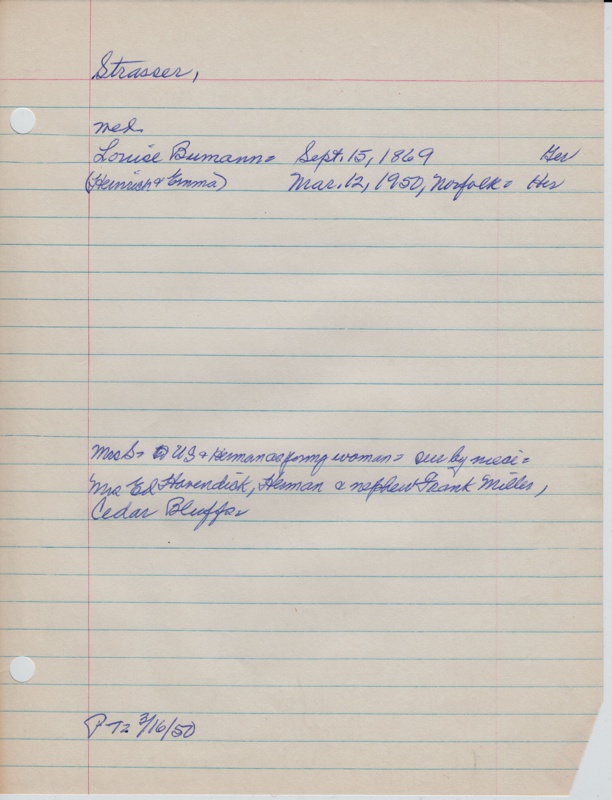 Strasser,
med.
Louise Bumann- Sept. 15, 1869 Ger
(Heinrich & Emma) Mar. 12, 1950, Norfolk- Her
Mrs S- US & Herman as young woman- sur by niece-
Mrs Ed Havendick, Herman & nephew Frank Miller,
Cedar Bluffs-
P-T2 3/16/50